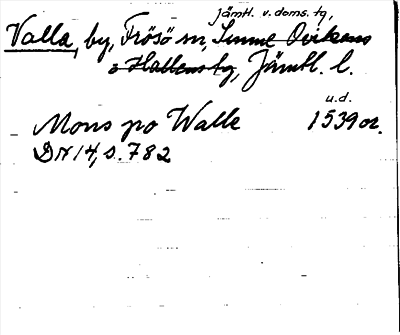 jämtl. v. doms. tg,
Valla, by, Frösö sn, Sunne Ovikens
o Hallens tg, Jämtl. l.
u.d.
Mons po Walle 1539 or.
DN 14, s. 782